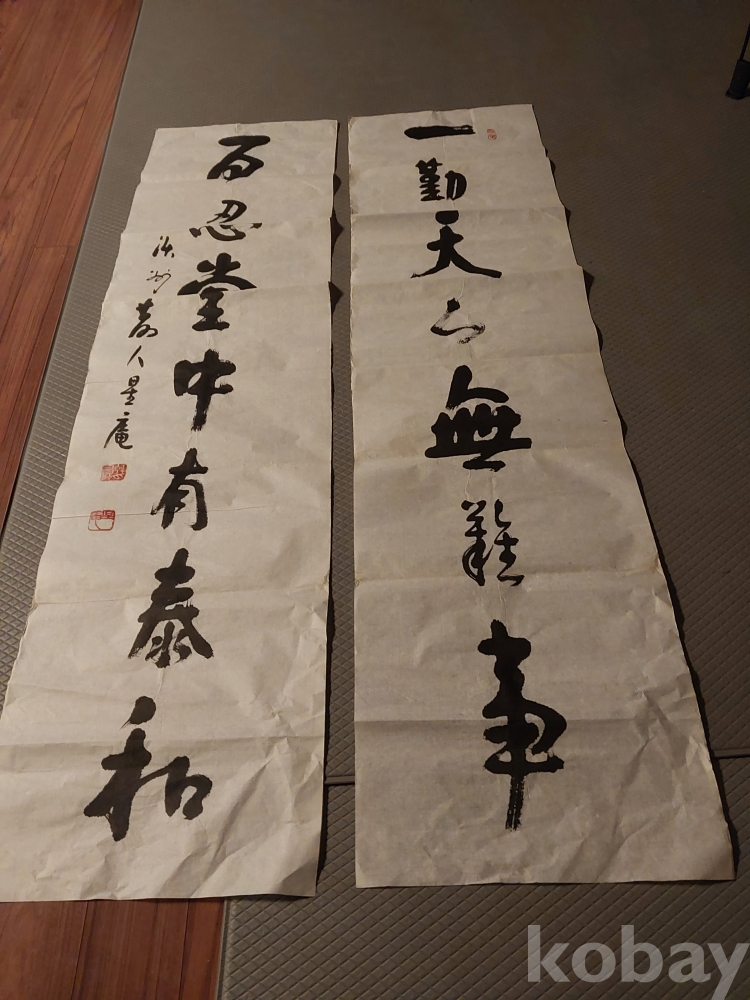 一勤天下無難事
百忍堂中有泰和
人 庵
kobay